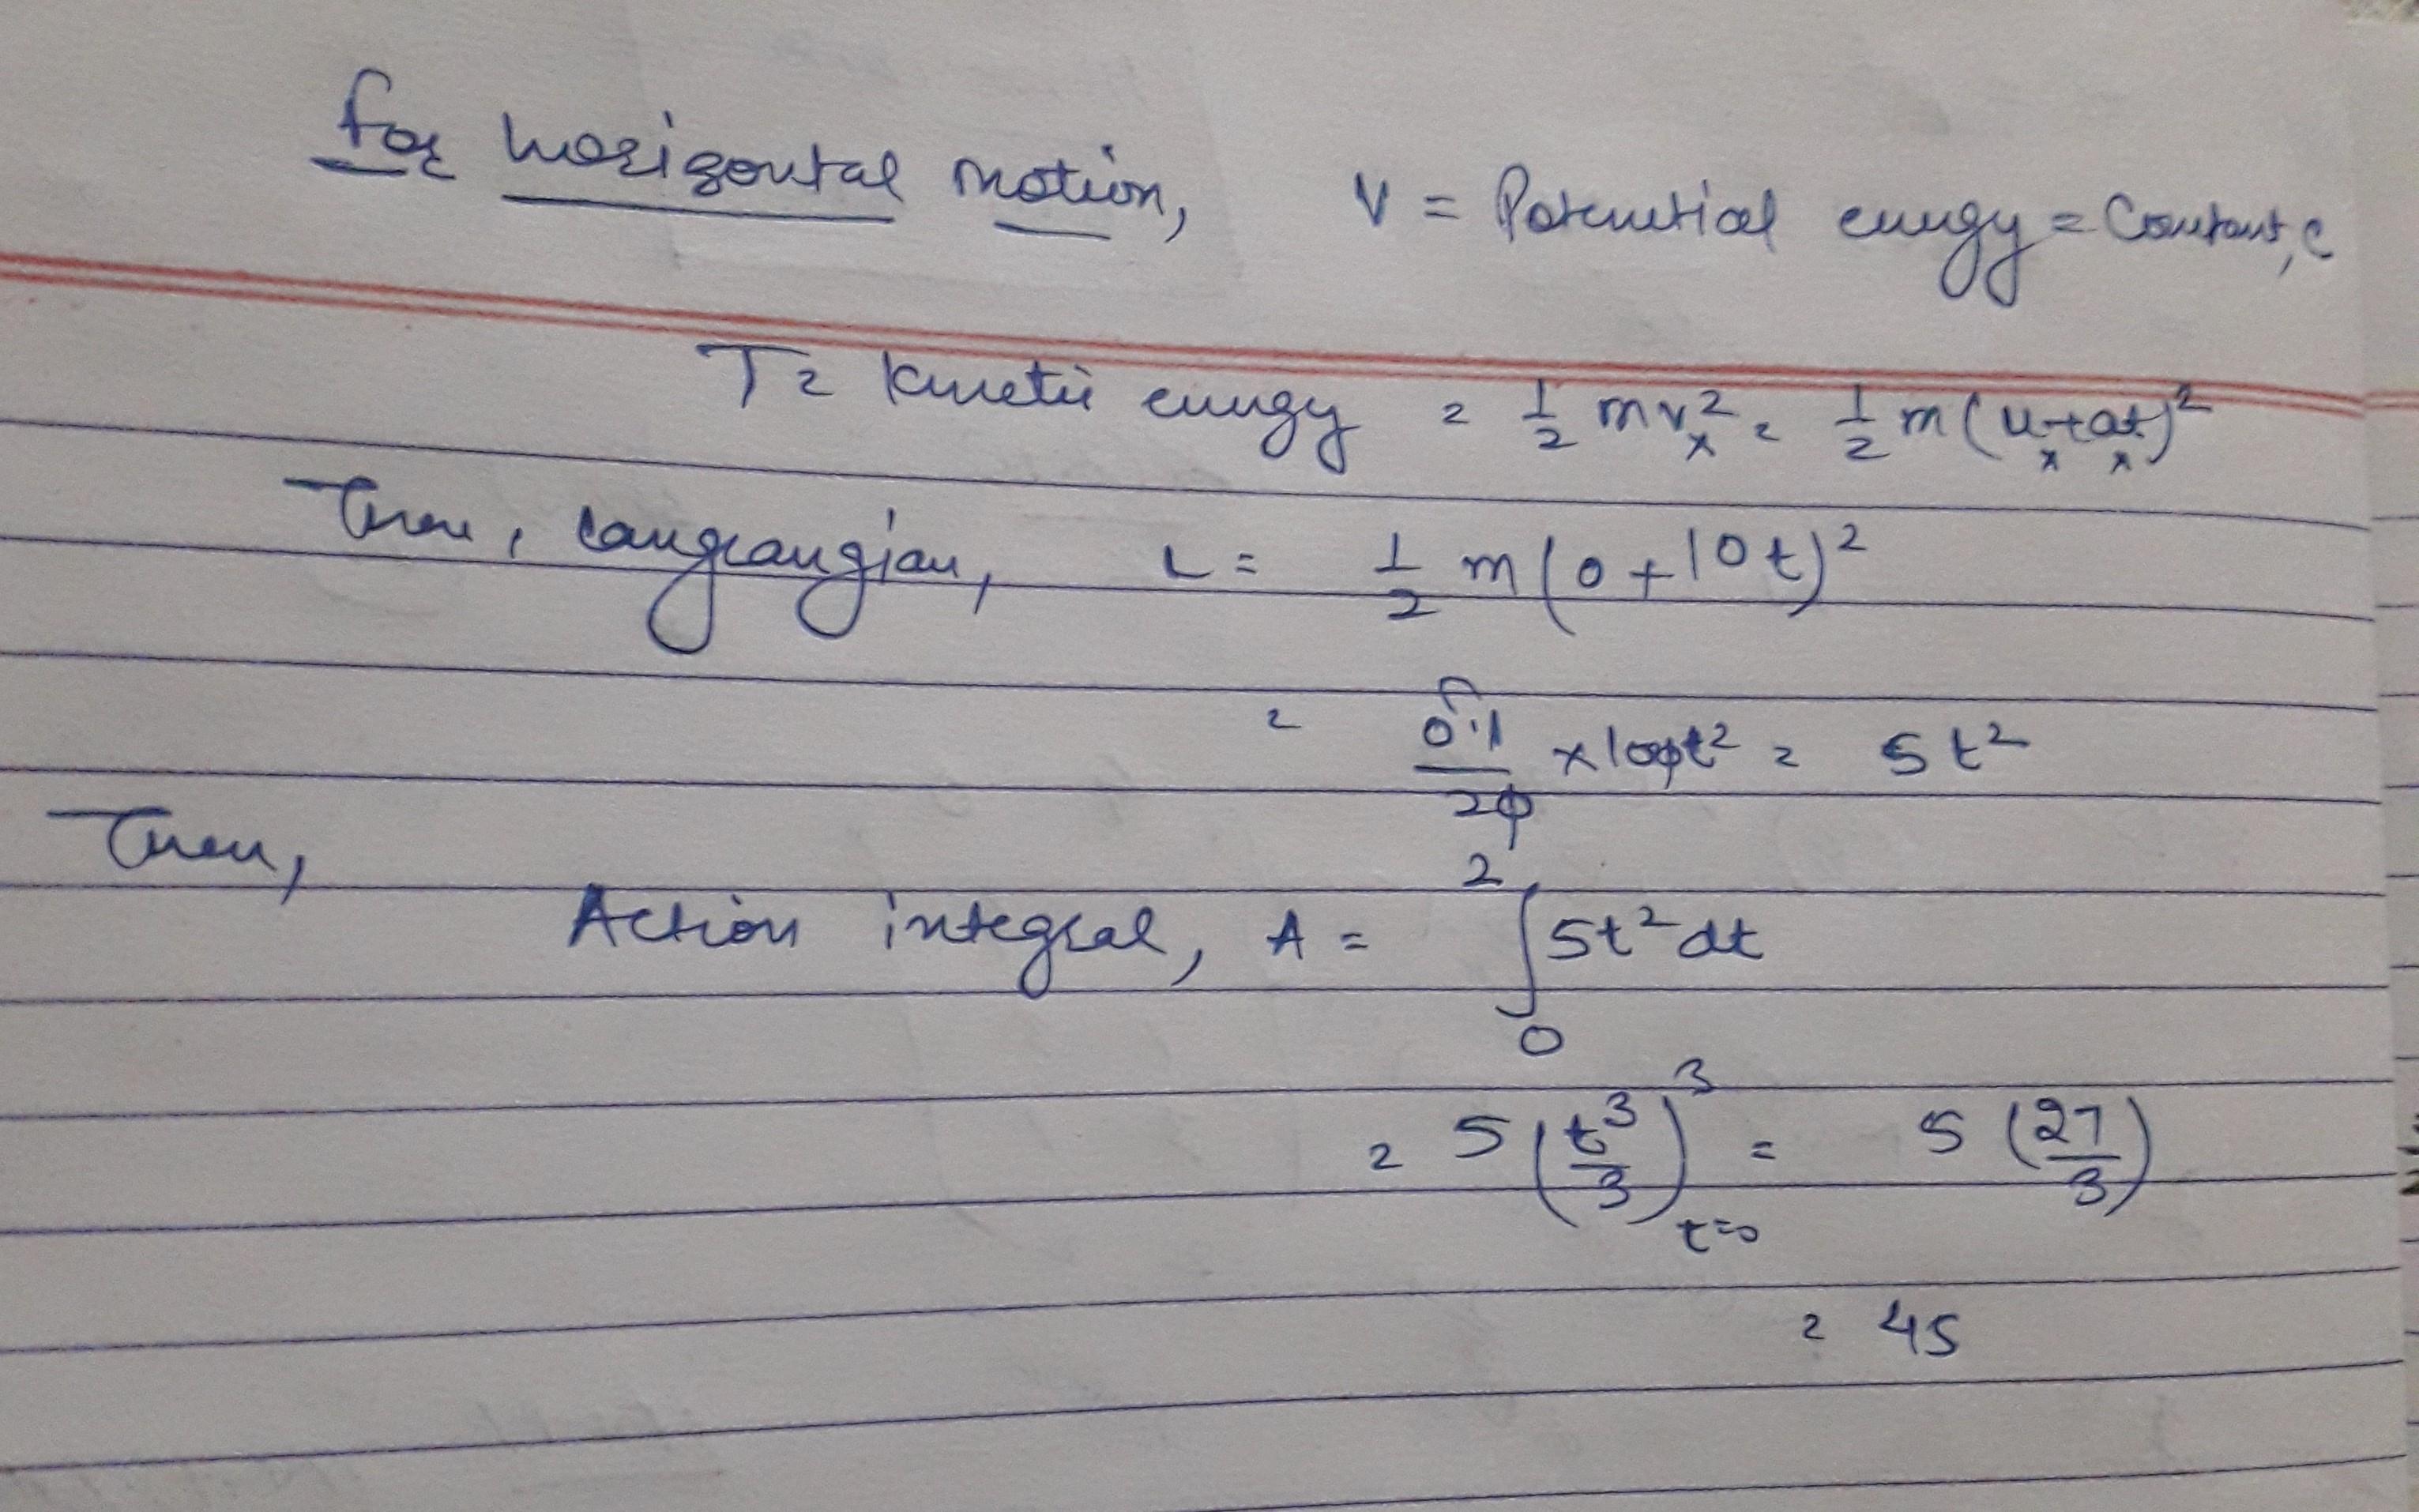 for horizontal motion, V = Potential energy = Constant, c
T = kinetic energy = 1/2 m v_x^2 = 1/2 m (u_x + a_x t)^2
Then, Langrangian, L = 1/2 m (0 + 10t)^2
= 0.1/2 × 100 t^2 = 5t^2
Then,
Action integral, A = ∫_0^2 5t^2 dt
= 5 (t^3/3)_{t=0}^3 = 5 (27/3)
= 45